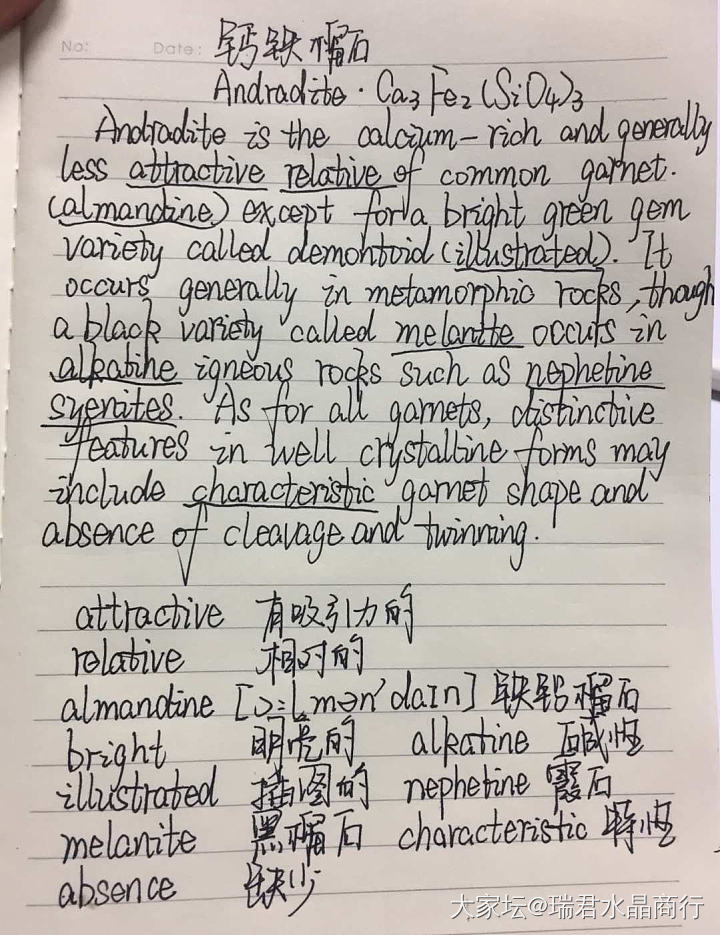 No: Date: 钙铁榴石
Andradite · Ca3Fe2(SiO4)3
Andradite is the calcium-rich and generally
less attractive relative of common garnet.
(almandine) except for a bright green gem
variety called demontoid (illustrated). It
occurs generally in metamorphic rocks, though
a black variety called melanite occurs in
alkatine igneous rocks such as nephetine
syenites. As for all garnets, distinctive
features in well crystalline forms may
include characteristic garnet shape and
absence of cleavage and twinning.
attractive 有吸引力的
relative 相对的
almandine [ɔ:lmən'daɪn] 铁铝榴石
bright 明亮的 alkatine 碱性
illustrated 插图的 nephetine 霞石
melanite 黑榴石 characteristic 特性
absence 缺少
大家坛@瑞君水晶商行